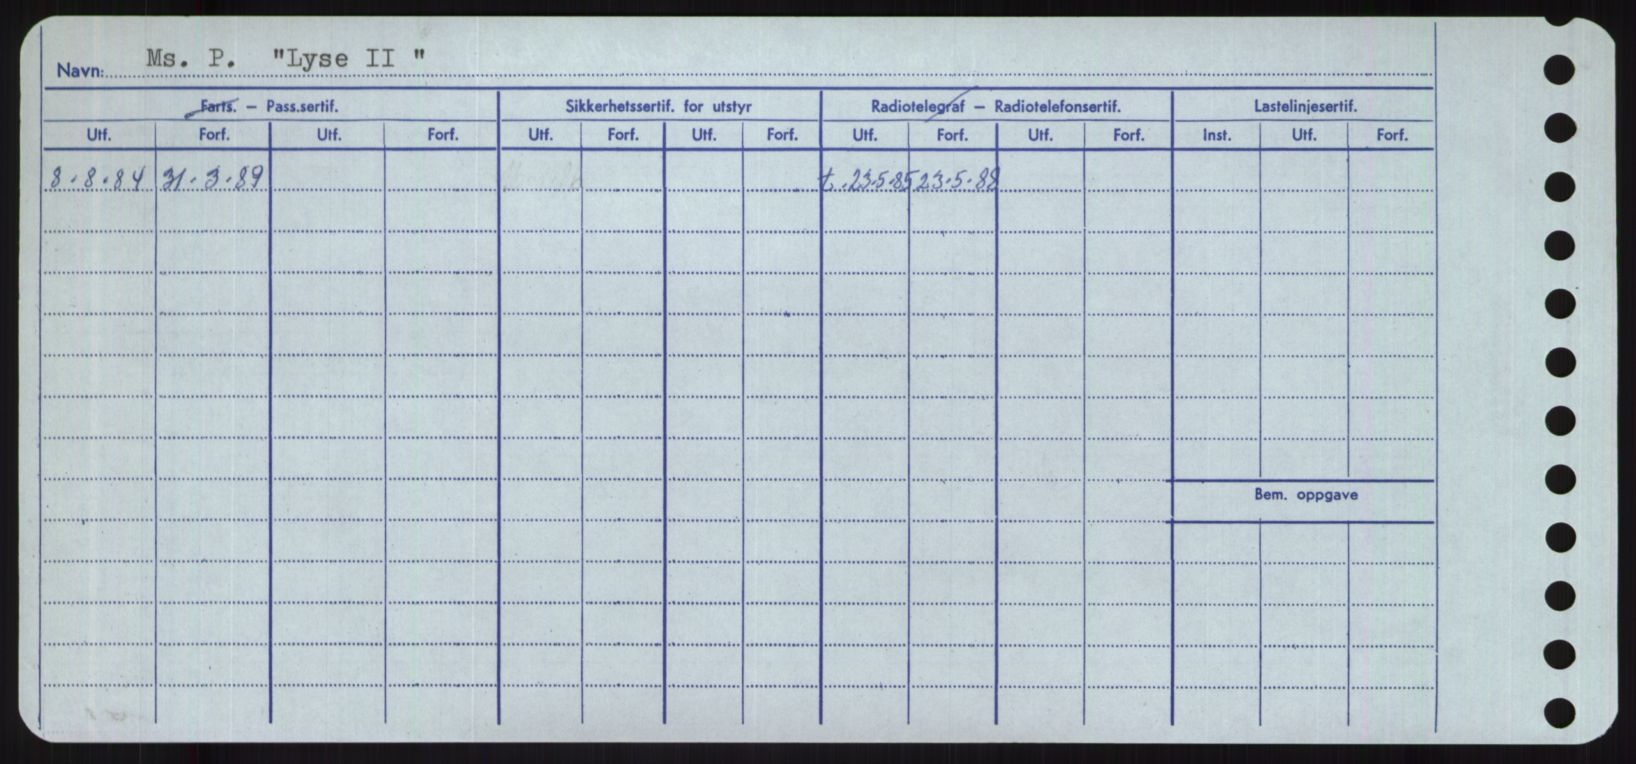 Navn: Ms. P. "Lyse II "
Farts. – Pass.sertif. Sikkerhetssertif. for utstyr Radiotelegraf – Radiotelefonsertif. Lastelinjesertif.
Utf. Forf. Utf. Forf. Utf. Forf. Utf. Forf. Utf. Forf. Utf. Forf. Inst. Utf. Forf.
8.8.84 31.3.89 t.23.5.85 23.5.88
Bem. oppgave